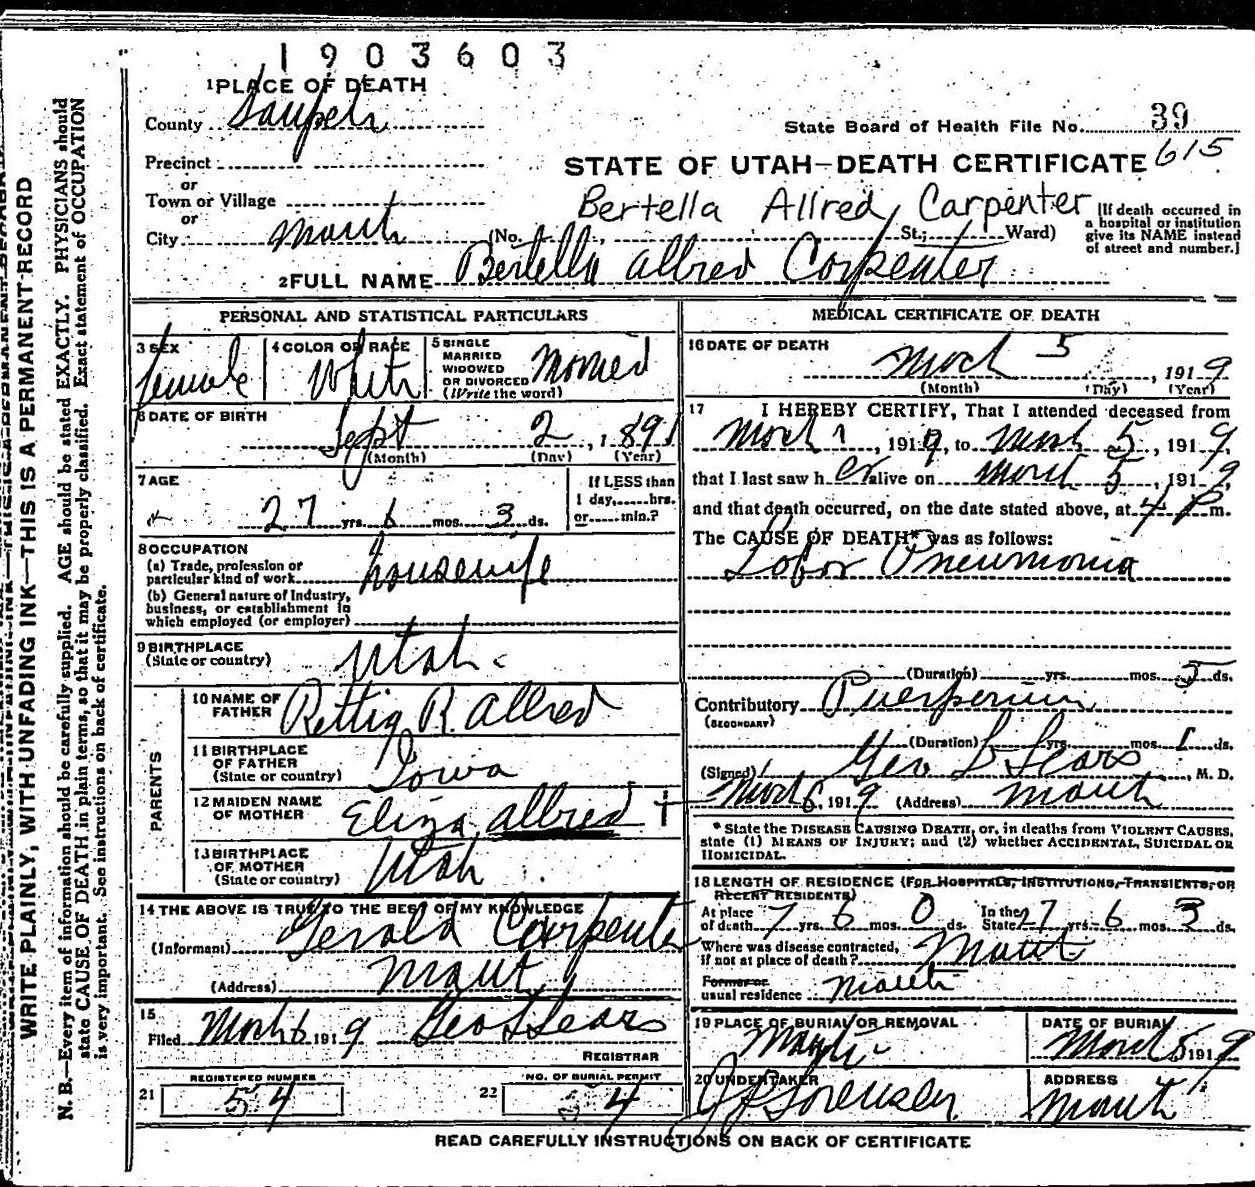 1903603
1 PLACE OF DEATH
County Sanpete
State Board of Health File No. 39
Precinct
STATE OF UTAH—DEATH CERTIFICATE 615
or
Town or Village
Bertella Allred Carpenter
or
City Manti (No. St.; Ward)
[If death occurred in
a hospital or institution
give its NAME instead
of street and number.]
2 FULL NAME Bertella Allred Carpenter
PERSONAL AND STATISTICAL PARTICULARS
3 SEX female
4 COLOR OR RACE White
5 SINGLE
MARRIED
WIDOWED
OR DIVORCED
(Write the word) Married
6 DATE OF BIRTH
Sept 2, 1891
(Month) (Day) (Year)
7 AGE
27 yrs. 6 mos. 3 ds.
If LESS than
1 day, hrs.
or min.?
8 OCCUPATION
(a) Trade, profession or
particular kind of work housewife
(b) General nature of Industry,
business, or establishment in
which employed (or employer)
9 BIRTHPLACE
(State or country) Utah
PARENTS
10 NAME OF
FATHER R. Allred
11 BIRTHPLACE
OF FATHER
(State or country) Iowa
12 MAIDEN NAME
OF MOTHER Eliza Allred
13 BIRTHPLACE
OF MOTHER
(State or country) Utah
14 THE ABOVE IS TRUE TO THE BEST OF MY KNOWLEDGE
(Informant) Gerald Carpenter
(Address) Manti
15
Filed March 6 1919 Geo L Sears
REGISTRAR
REGISTERED NUMBER
21 54
NO. OF BURIAL PERMIT
22 54
MEDICAL CERTIFICATE OF DEATH
16 DATE OF DEATH
March 5, 1919
(Month) (Day) (Year)
17 I HEREBY CERTIFY, That I attended deceased from
March 1, 1919, to March 5, 1919,
that I last saw her alive on March 5, 1919
and that death occurred, on the date stated above, at 4 P m.
The CAUSE OF DEATH* was as follows:
Lobar Pneumonia
(Duration) yrs. mos. 5 ds.
Contributory Puerperium
(SECONDARY)
(Duration) yrs. mos. 1 ds.
(Signed) Geo L Sears, M. D.
March 6, 1919 (Address) Manti
* State the DISEASE CAUSING DEATH, or, in deaths from VIOLENT CAUSES,
state (1) MEANS OF INJURY; and (2) whether ACCIDENTAL, SUICIDAL OR
HOMICIDAL.
18 LENGTH OF RESIDENCE (FOR HOSPITALS, INSTITUTIONS, TRANSIENTS, OR
RECENT RESIDENTS)
At place
of death 7 yrs. 6 mos. 0 ds. In the
State 27 yrs. 6 mos. 3 ds.
Where was disease contracted,
if not at place of death? Manti
Former or
usual residence Manti
19 PLACE OF BURIAL OR REMOVAL
DATE OF BURIAL
March 1919
20 UNDERTAKER
Sorensen
ADDRESS
Manti
READ CAREFULLY INSTRUCTIONS ON BACK OF CERTIFICATE
WRITE PLAINLY, WITH UNFADING INK—THIS IS A PERMANENT RECORD
N. B.—Every item of information should be carefully supplied. AGE should be stated EXACTLY. PHYSICIANS should
state CAUSE OF DEATH in plain terms, so that it may be properly classified. Exact statement of OCCUPATION
is very important. See instructions on back of certificate.